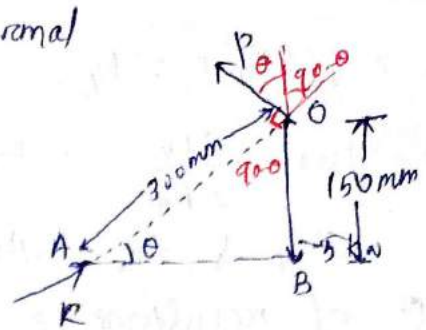 ormal
P
θ
90-θ
O
300mm
90-θ
150mm
A
θ
B
5 kN
R